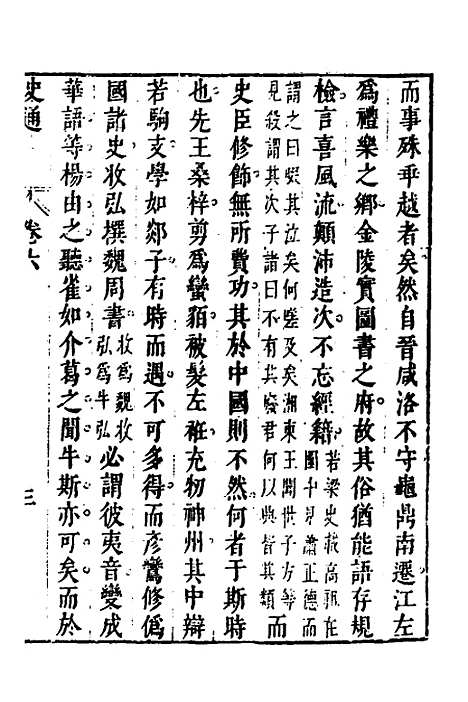 而事殊乖越者矣然自晉咸洛不守龜鼎南遷江左
爲禮樂之鄉金陵實圖書之府故其俗猶能語存規
檢言喜風流顛沛造次不忘經籍若梁史載高祖在
圍中見蕭正德而
謂之曰啜其泣矣何嗟及矣湘東王聞世子方等
見殺謂其次子諸曰不有其廢君何以興皆其類而
史臣修飾無所費功其於中國則不然何者于斯時
也先王桑梓剪爲蠻貊被髮左衽充牣神州其中辯
若駒支學如郯子有時而遇不可多得而彦鸞修僞
國諸史收弘撰魏周書收爲魏收
弘爲牛弘必謂彼夷音變成
華語等楊由之聽雀如介葛之聞牛斯亦可矣而於
史通
卷六
三